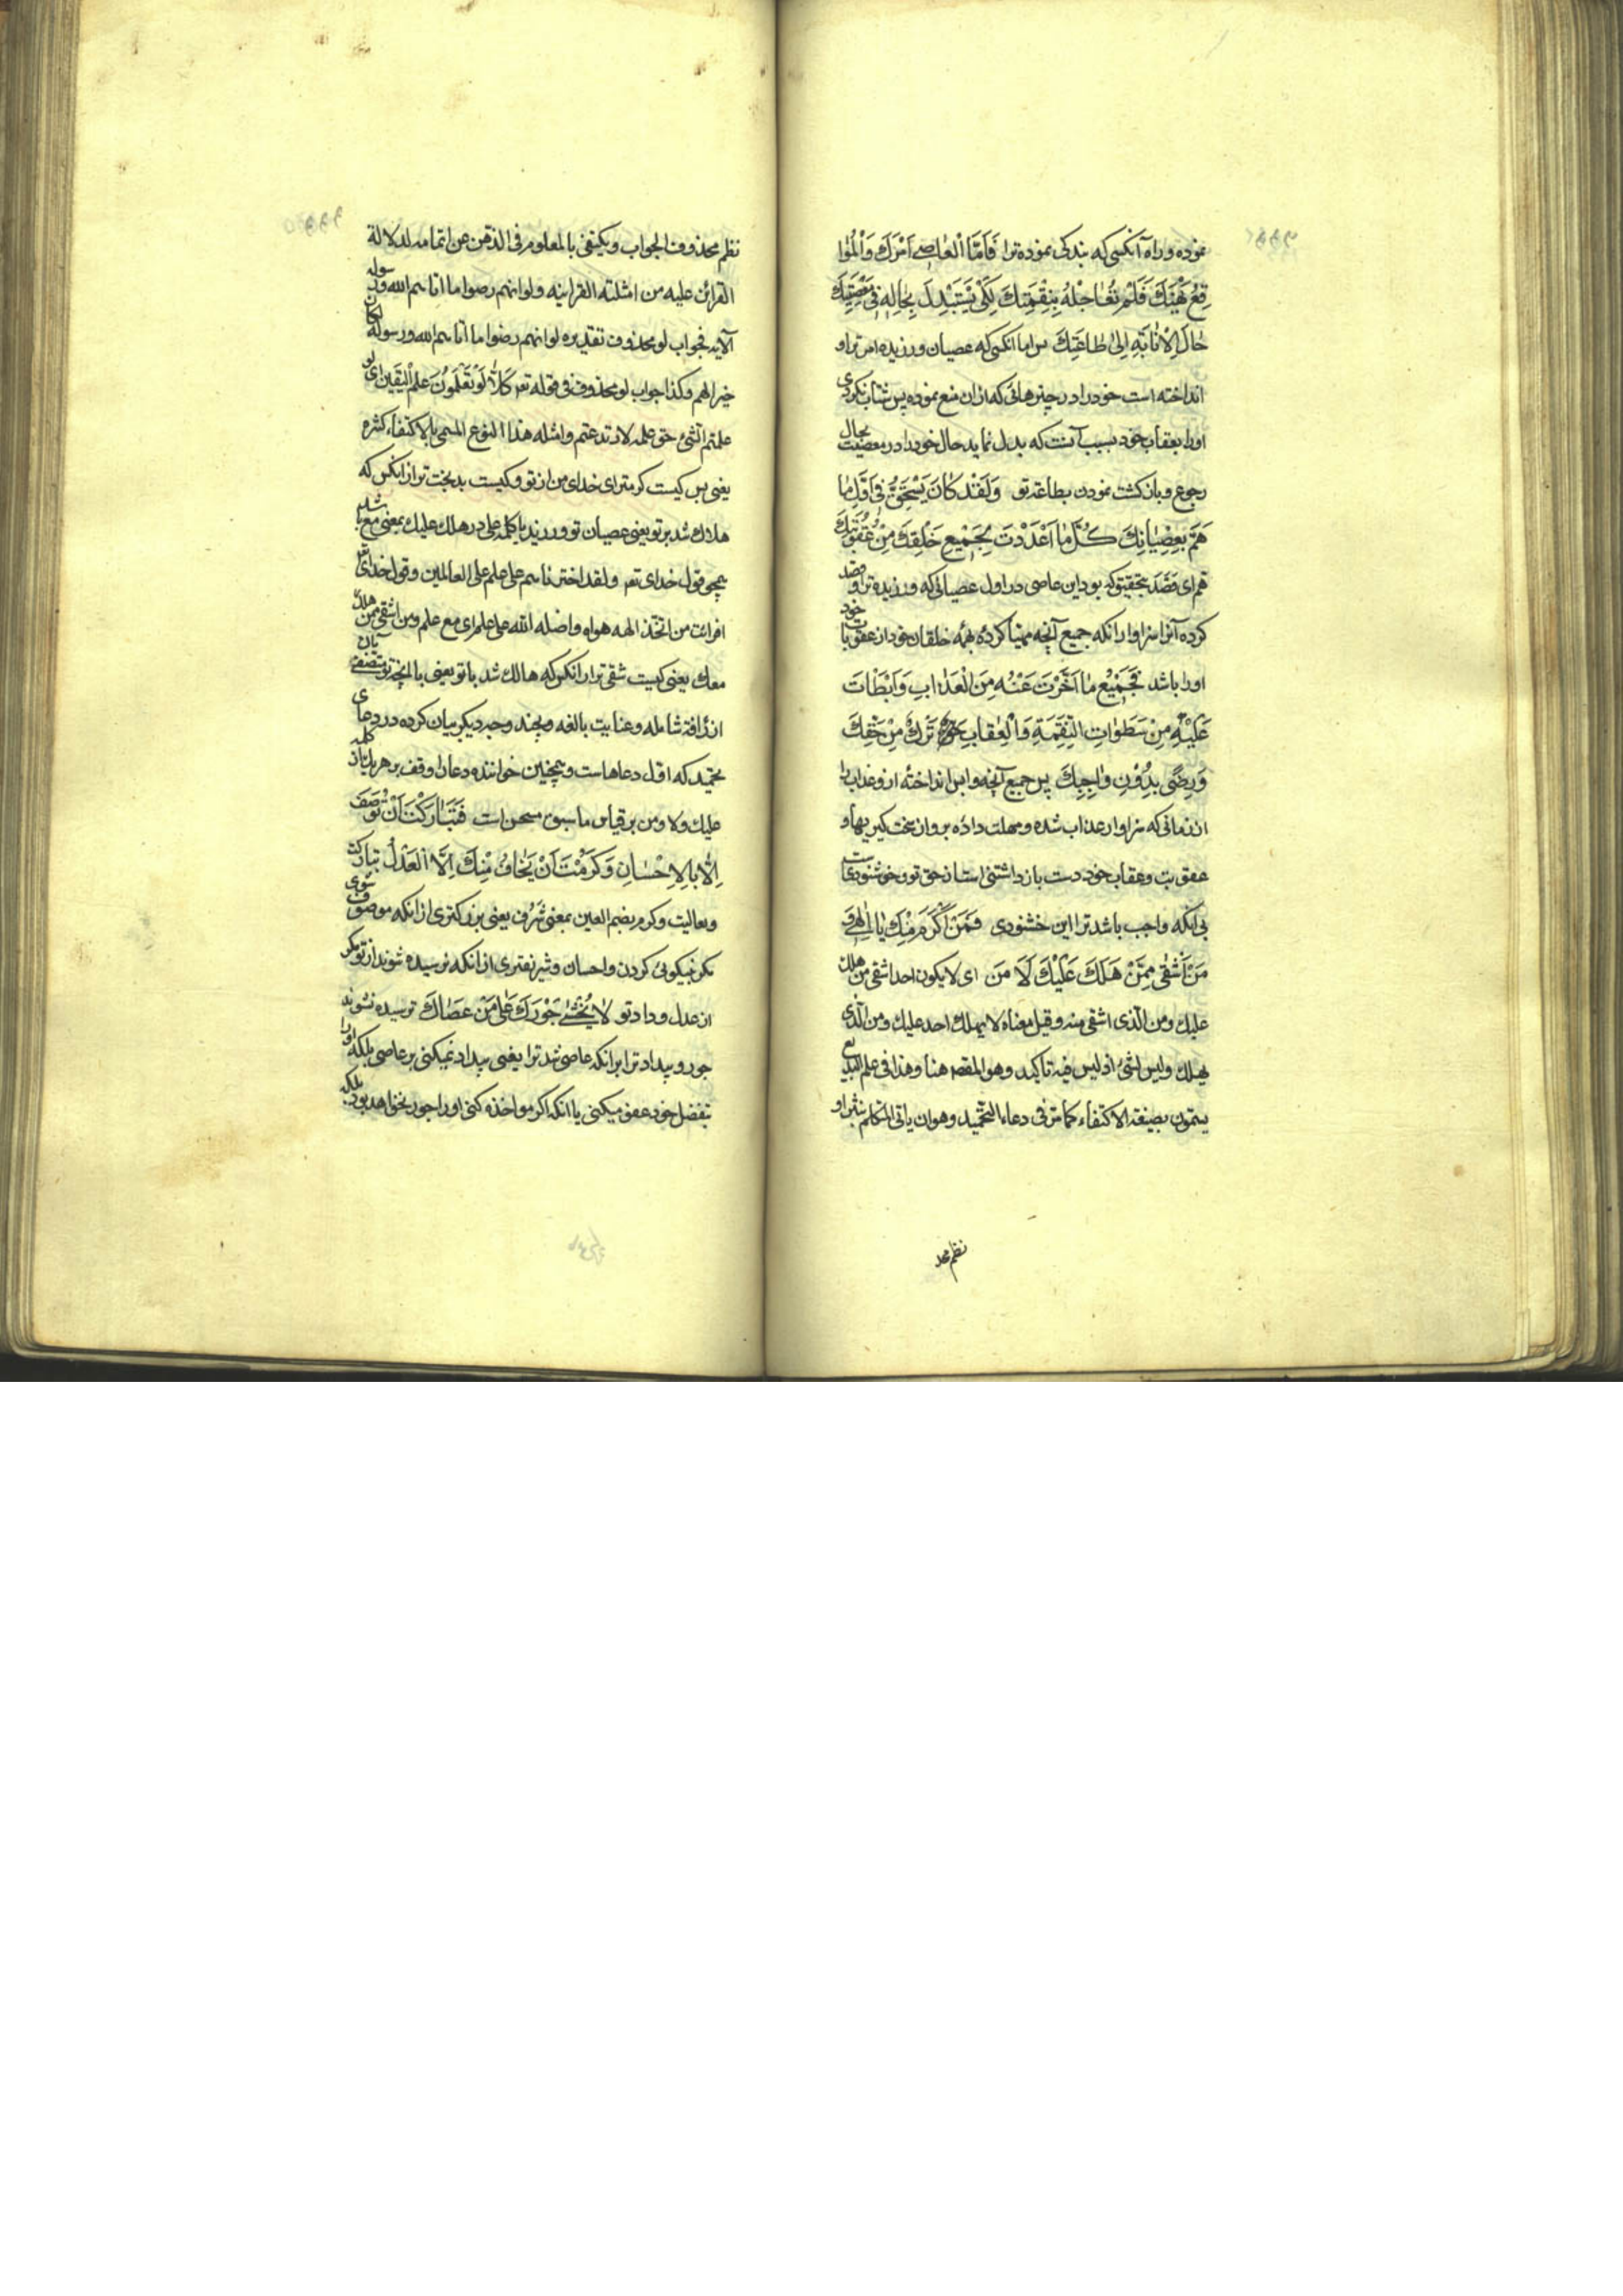 نموده وراه آنکسی که بندکی نموده ترا فَاَمَّا الْعاصِے اَمْرَكَ وَالْمُوا
قِعُ نَهْيَكَ فَلَمْ تُعٰاجِلْهُ بِنِقْمَتِكَ لِكَىْ يَسْتَبْدِلَ بِحٰالِهِ فِى مَعْصِيَتِكَ
حٰالَ الْاِنٰابَةِ اِلىٰ طٰاعَتِكَ پس اما انکسی که عصیان ورزیده امر ترا و
انداخته است خود را در چیزهائی که از ان منع نموده پس شتاب نکردی
اورا بعقاب خود بسبب آنست که بدل نماید حال خود را در معصیت بحال
رجوع و بازکشت نمودن بطاعة تو وَلَقَدْ كٰانَ يَسْتَحِقُّ فِى اَوَّلِ مٰا
هَمَّ بِعِصْيٰانِكَ كُلَّ مٰا اَعْدَدْتَ لِجَمْيعِ خَلْقِكَ مِنْ عُقُوبَتِكَ
هم ای قَصَدَ بتحقیق که بود این عاصی در اول عصیانی که ورزیده ترا و قصد
کرده آنرا سزاوار انکه جمیع آنچه مهیّا کردهٔ بهمه خلقان خود از عقوبات خود
اورا باشد فَجَمْيعُ مٰا اَخَّرْتَ عَنْهُ مِنَ الْعَذٰابِ وَاَبْطَاْتَ
عَلَيْهِ مِنْ سَطَوٰاتِ النَّقِمَةِ وَالْعِقٰابِ تَرْكٌ مِنْ حَقِّكَ
وَرِضًى بِدُوْنِ وٰاجِبِكَ پس جمیع آنچه واپس انداختهٔ ازو عذاب را
از زمانی که سزاوار عذاب شده و مهلت دادهٔ برو از سخت کیریها و
عقوبت و عقاب خود دست بازداشتنی است از حق تو و خوشنودی است
بی انکه واجب باشد ترا این خشنودی فَمَنْ اَكْرَمُ مِنْكَ يٰا اِلٰهِى وَ
مَنْ اَشْقٰى مِمَّنْ هَلَكَ عَلَيْكَ لَا مَن ای لا یکون احد اشقی ممن هلك
علیك ومن الّذی اشقی منه وقیل معناه لا یهلك احد علیك ومن الّذی
یهلك ولیس لشئ اذ لیس فیه تاکید وهو المقصد هنا وهذا فی علم البدیع
یسمون بصیغة الاکتفاء کما مرّ فی دعاء التحمید وهو ان یاتی المتکلم بنثر او
نظم محد
نظم محذوف الجواب ویکتفی بالمعلوم فی الذهن عن اتمامه لدلالة
القرائن علیه من امثلته القرانیه ولو انهم رضوا ما اتاهم الله ورسوله
الآیه فجواب لو محذوف تقدیره لو انهم رضوا ما اتاهم الله ورسوله لکان
خیرا لهم وکذا جواب لو محذوف فی قوله تعر كَلَّا لَوْ تَعْلَمُونَ عِلْمَ الْيَقينِ ای لو
علمتم الشئ حق علمه لارتدعتم وامثله هذا النوع المسمی بالاکتفاء کثیره
یعنی پس کیست کرمتر ای خدای من از تو و کیست بدبخت تر از انکس که
هلاك شد بر تو یعنی عصیان تو ورزید یا کلمه علی در هلك علیك بمعنی مع باشد
همچو قول خدای تعر ولقد اخترناهم علی علم علی العالمین وقول خدای تعر
افرایت من اتّخذ الهه هواه واضله اللّه علی علم ای مع علم ومن اشقی ممن هلك
معك یعنی کیست شقی تر از انکس که هالك شد با تو یعنی با انچه تو متصفی بان
از رافة شامله وعنایت بالغه و بچند وجه دیکر بیان کرده در دعای
تحمید که اوّل دعاهاست و همچنین خواننده دعا را وقف بر هر یك از کلمه
علیك ولا ومن بر قیاس ما سبق مستحسن است فَتَبٰارَكْتَ اَنْ تُوصَفَ
اِلّٰا بِالْاِحْسٰانِ وَكَرُمْتَ اَنْ يُخٰافَ مِنْكَ اِلَّا الْعَدْلُ تبارکت
وتعالیت وکرم بضم العین بمعنی شَرُف یعنی بزرکتری از انکه موصوف شوی
مکر به نیکوئی کردن و احسان و شریفتری از انکه ترسیده شوند از تو مکر
از عدل و داد تو لٰا يُخْشٰى جَوْرُكَ عَلٰى مَنْ عَصٰاكَ ترسیده نشوند
جور و بیداد ترا بر انکه عاصی شد ترا یعنی بیداد نمیکنی بر عاصی بلکه اورا
بتفضل خود عفو میکنی یا انکه اکر مواخذه کنی اورا جور نخواهد بود بلکه